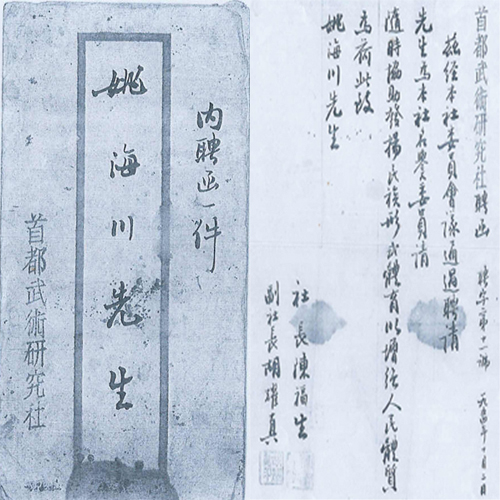 內聘函一件
姚海川先生
首都武術研究社
首都武術研究社聘函 聘字第十一號
茲經本社委員會議通過聘請
先生為本社名譽委員請
隨時協助發揚民族形式體育以增強人民體質
為荷此致
姚海川先生
社長陳福生
副社長胡耀真